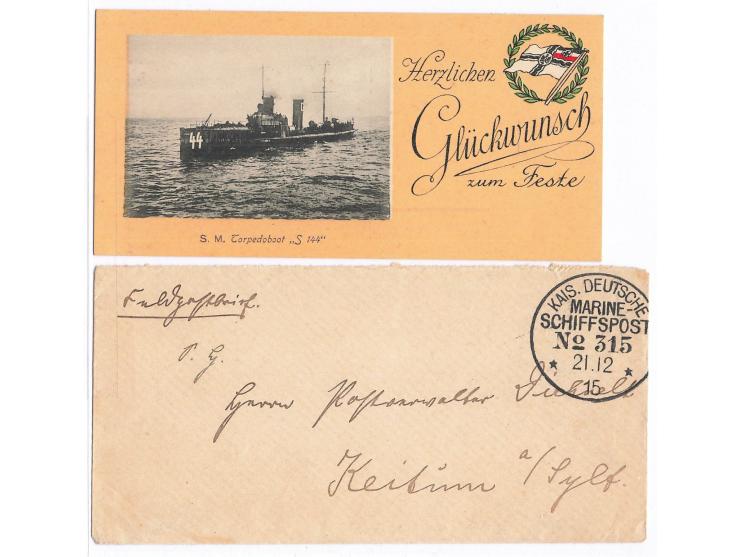 44
Herzlichen
Glückwunsch
zum Feste
S. M. Torpedoboot „S 144"
Feldpostbrief.
KAIS. DEUTSCHE
MARINE-
SCHIFFSPOST
No 315
* 21.12 *
15
Herrn Postverwalter
Keitum a/Sylt.